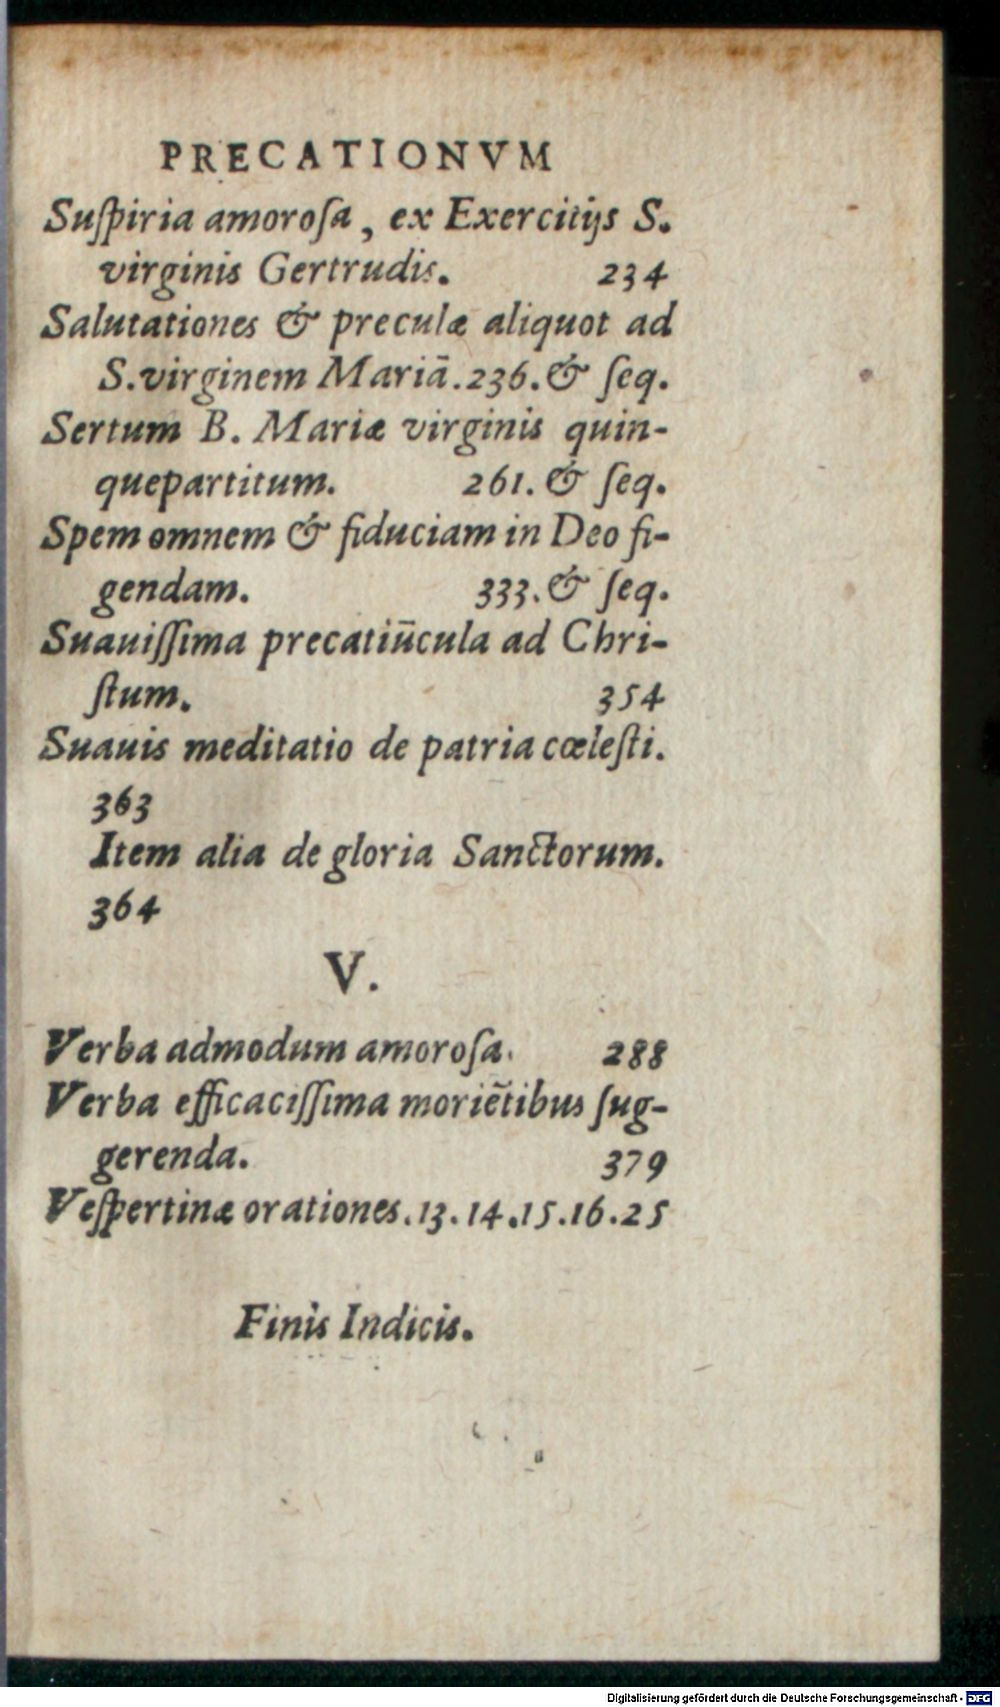 PRECATIONVM
Suſpiria amoroſa, ex Exercitijs S.
virginis Gertrudis. 234
Salutationes & preculæ aliquot ad
S.virginem Mariā.236.& ſeq.
Sertum B. Mariæ virginis quin-
quepartitum. 261. & ſeq.
Spem omnem & fiduciam in Deo fi-
gendam. 333.& ſeq.
Suauiſſima precatiūcula ad Chri-
ſtum. 354
Suauis meditatio de patria cœleſti.
363
Item alia de gloria Sanctorum.
364
V.
Verba admodum amoroſa. 288
Verba efficaciſſima moriētibus ſug-
gerenda. 379
Veſpertinæ orationes.13.14.15.16.25
Finis Indicis.
Digitalisierung gefördert durch die Deutsche Forschungsgemeinschaft - DFG